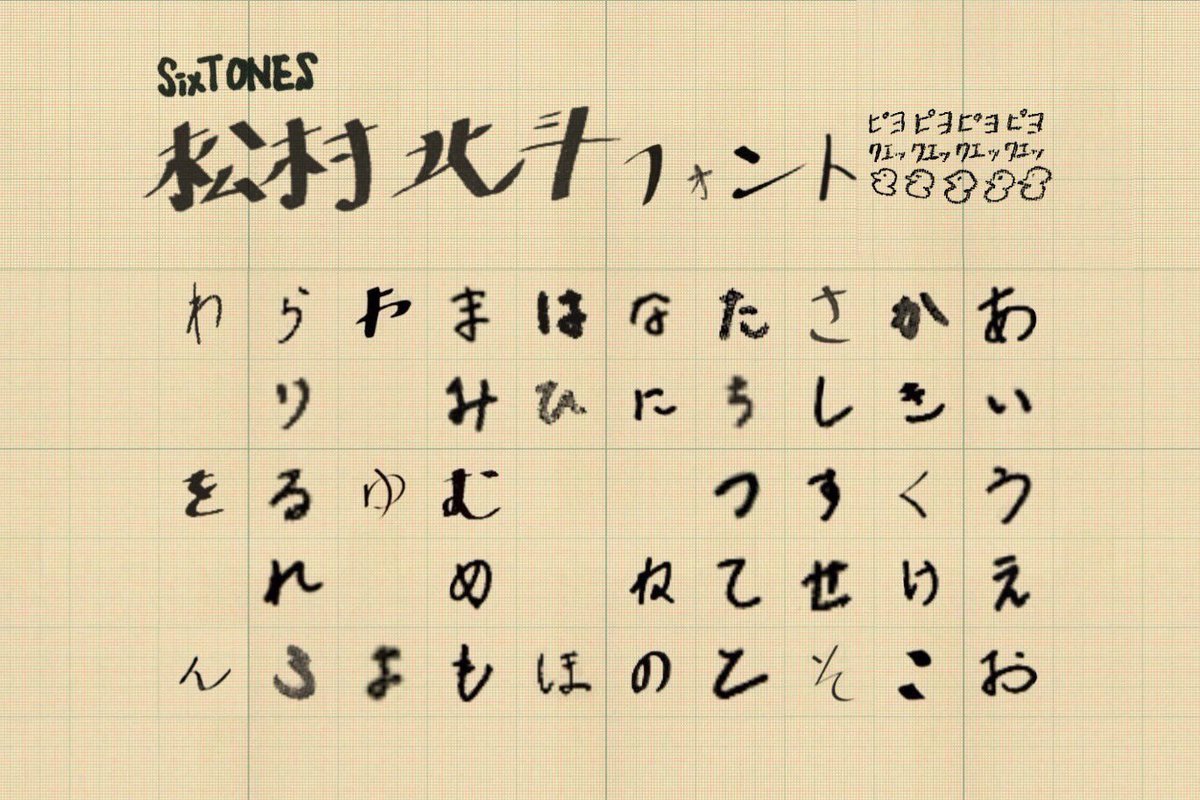 SixTONES
松村北斗フォント
ピヨピヨピヨピヨ
クェックェックェックェッ
あいうえお
かきくけこ
さしすせそ
たちつてと
なにねの
はひほ
まみむめも
やゆよ
らりるれろ
わをん